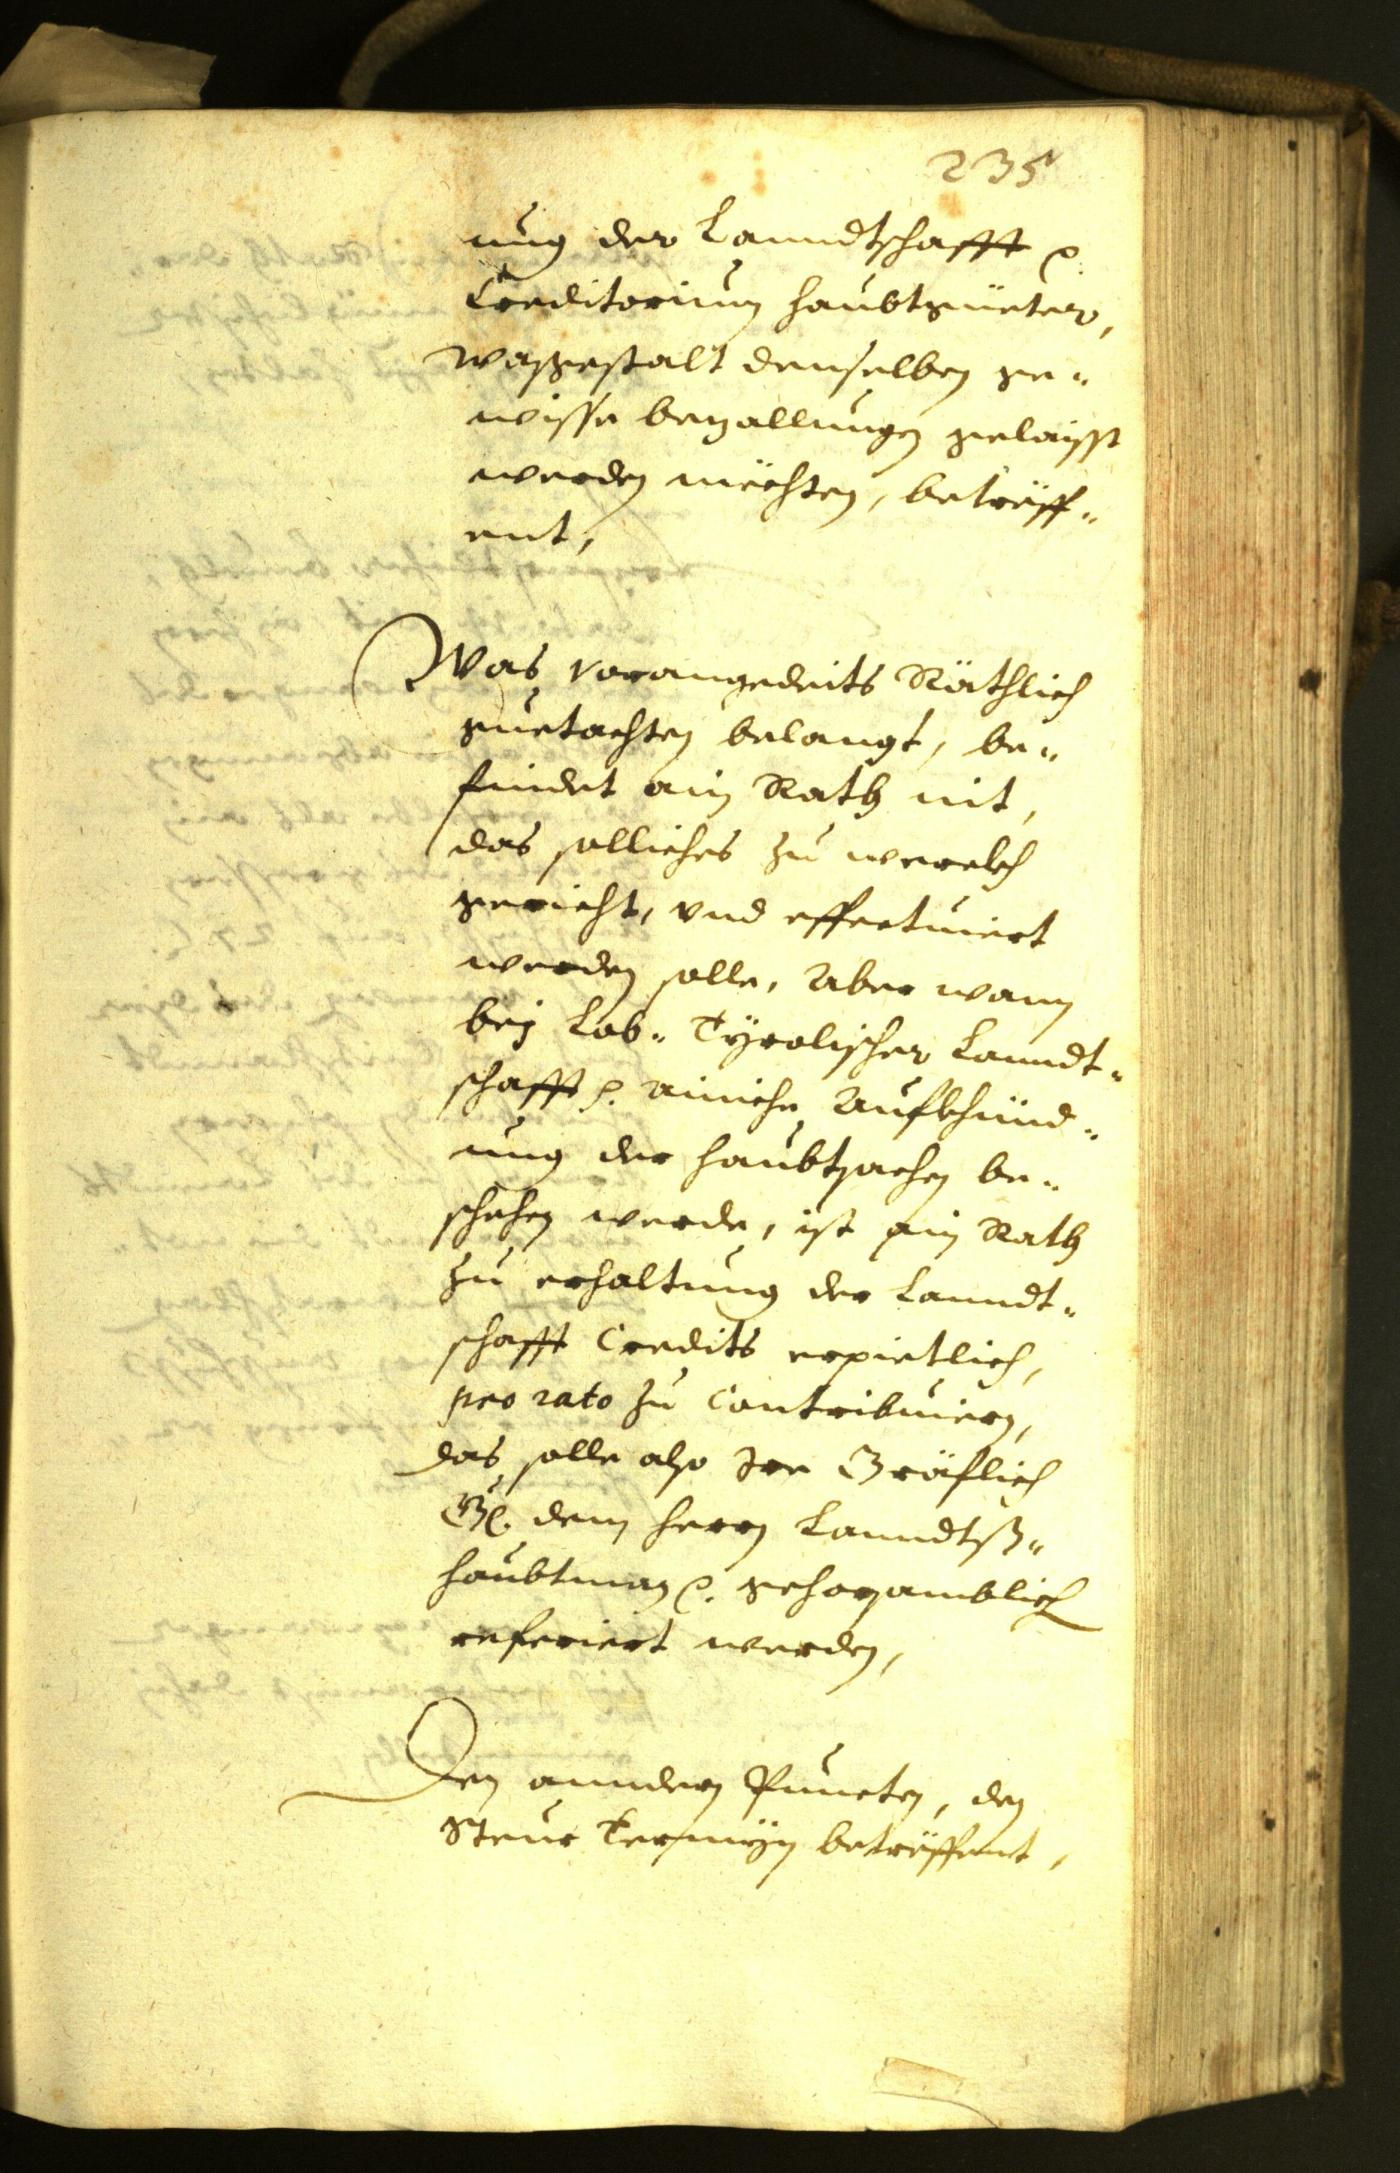 235
nung der Lanndtschafft etc.
Creditorium haubtgüeter,
waßgestalt denselben ge-
wisse bezallungen gelaisst
werden mëchten, betreff-
ent,
Was vorangedeits Räthlich
guetachten belangt, be-
findet ain Rath nit,
das solliches zu werckh
gericht, vnd effectuiert
werden solle, Aber wann
bej Lob. Tÿrolischer Lanndt-
schafft etc. ainiche Aufkhünd-
ung der haubtsachen be-
schehen werde, ist ain Rath
zu erhaltung der Lanndt-
schafft Credits erpietlich,
pro rato zu Contribuiern,
das solle also Ire Gräflich
G. dem herrn Lanndtß-
haubtman etc. gehorsamblich
referiert werden,
Den anndern Puncten, den
Steur Termin betreffent,